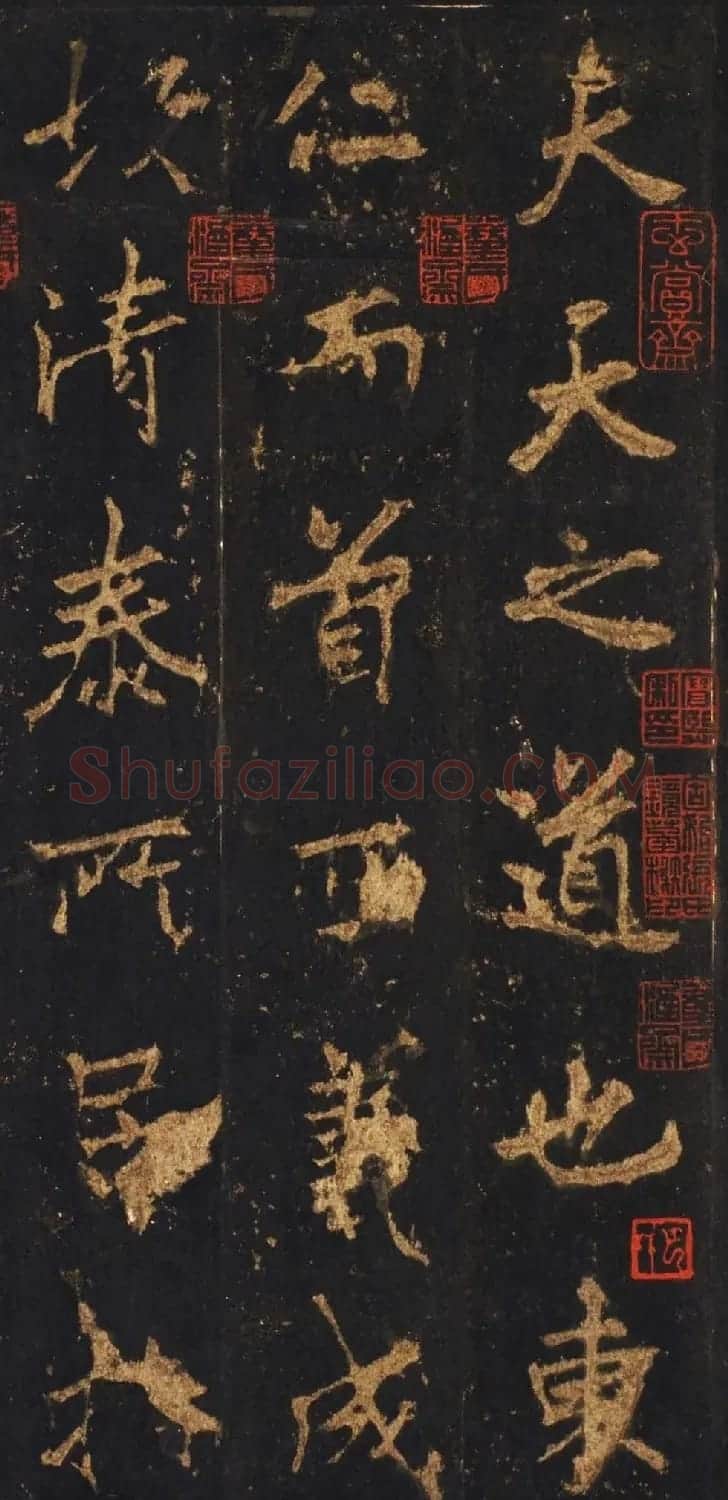 夫天之道也東
仁而首西義成
故清泰所
玄賞齋
Shufaziliao.COM